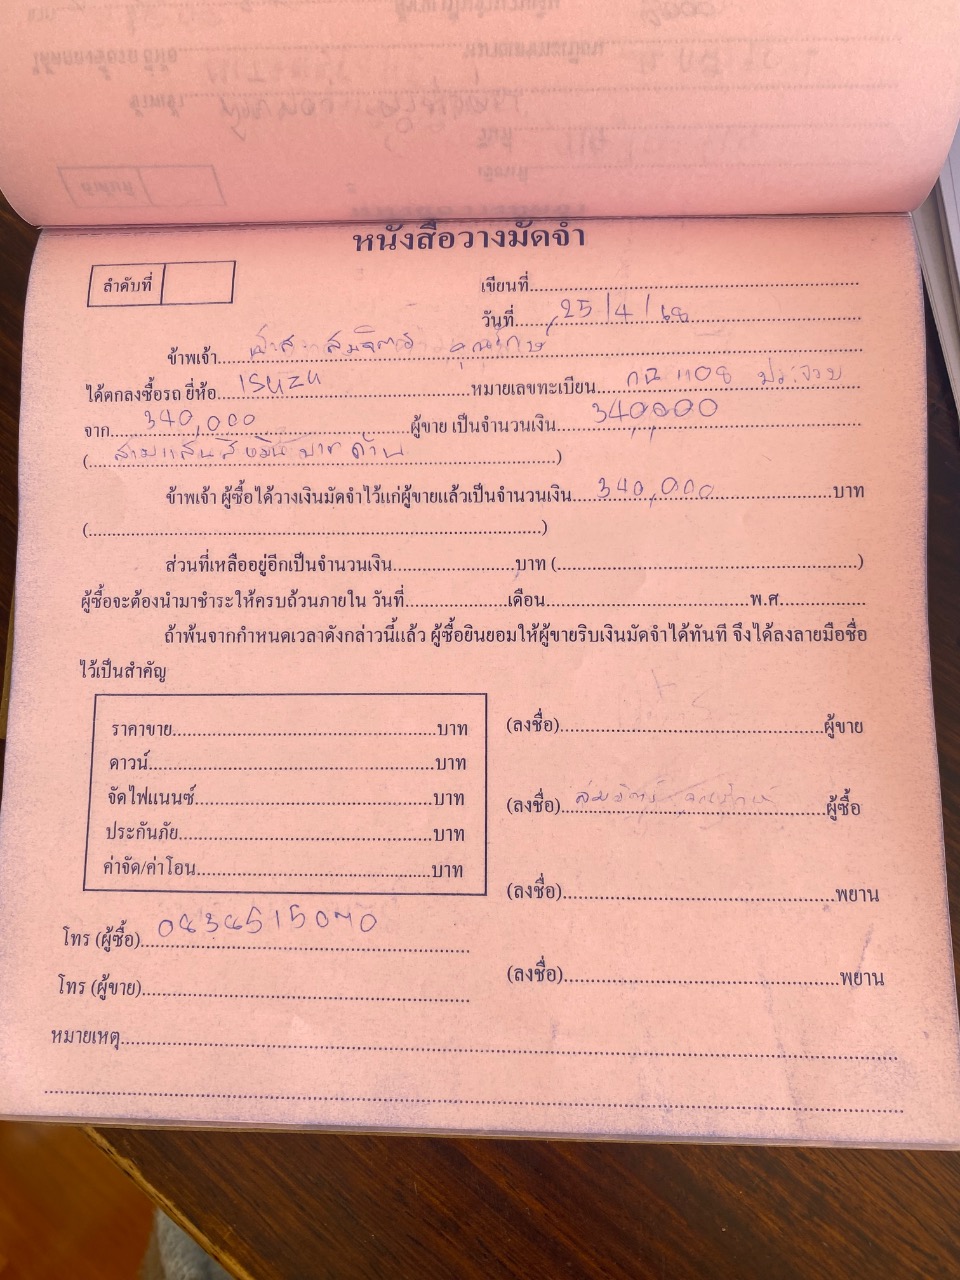 หนังสือวางมัดจำ
ลำดับที่
เขียนที่
วันที่ 25/4/68
ข้าพเจ้า
ได้ตกลงซื้อรถ ยี่ห้อ ISUZU หมายเลขทะเบียน 1108
จาก 340,000 ผู้ขาย เป็นจำนวนเงิน 340,000
(สามแสนสี่หมื่นบาท)
ข้าพเจ้า ผู้ซื้อได้วางเงินมัดจำไว้แก่ผู้ขายแล้วเป็นจำนวนเงิน 340,000 บาท
( )
ส่วนที่เหลืออยู่อีกเป็นจำนวนเงิน บาท ( )
ผู้ซื้อจะต้องนำมาชำระให้ครบถ้วนภายใน วันที่ เดือน พ.ศ.
ถ้าพ้นจากกำหนดเวลาดังกล่าวนี้แล้ว ผู้ซื้อยินยอมให้ผู้ขายริบเงินมัดจำได้ทันที จึงได้ลงลายมือชื่อ
ไว้เป็นสำคัญ
ราคาขาย บาท
ดาวน์ บาท
จัดไฟแนนซ์ บาท
ประกันภัย บาท
ค่าจัด/ค่าโอน บาท
(ลงชื่อ) ผู้ขาย
(ลงชื่อ) ผู้ซื้อ
(ลงชื่อ) พยาน
(ลงชื่อ) พยาน
โทร (ผู้ซื้อ)
โทร (ผู้ขาย)
หมายเหตุ